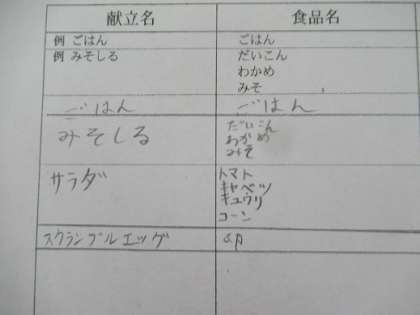 献立名 食品名
例 ごはん ごはん
例 みそしる だいこん
わかめ
みそ
ごはん ごはん
みそしる だいこん
わかめ
みそ
サラダ トマト
キャベツ
キュウリ
コーン
スクランブルエッグ 卵